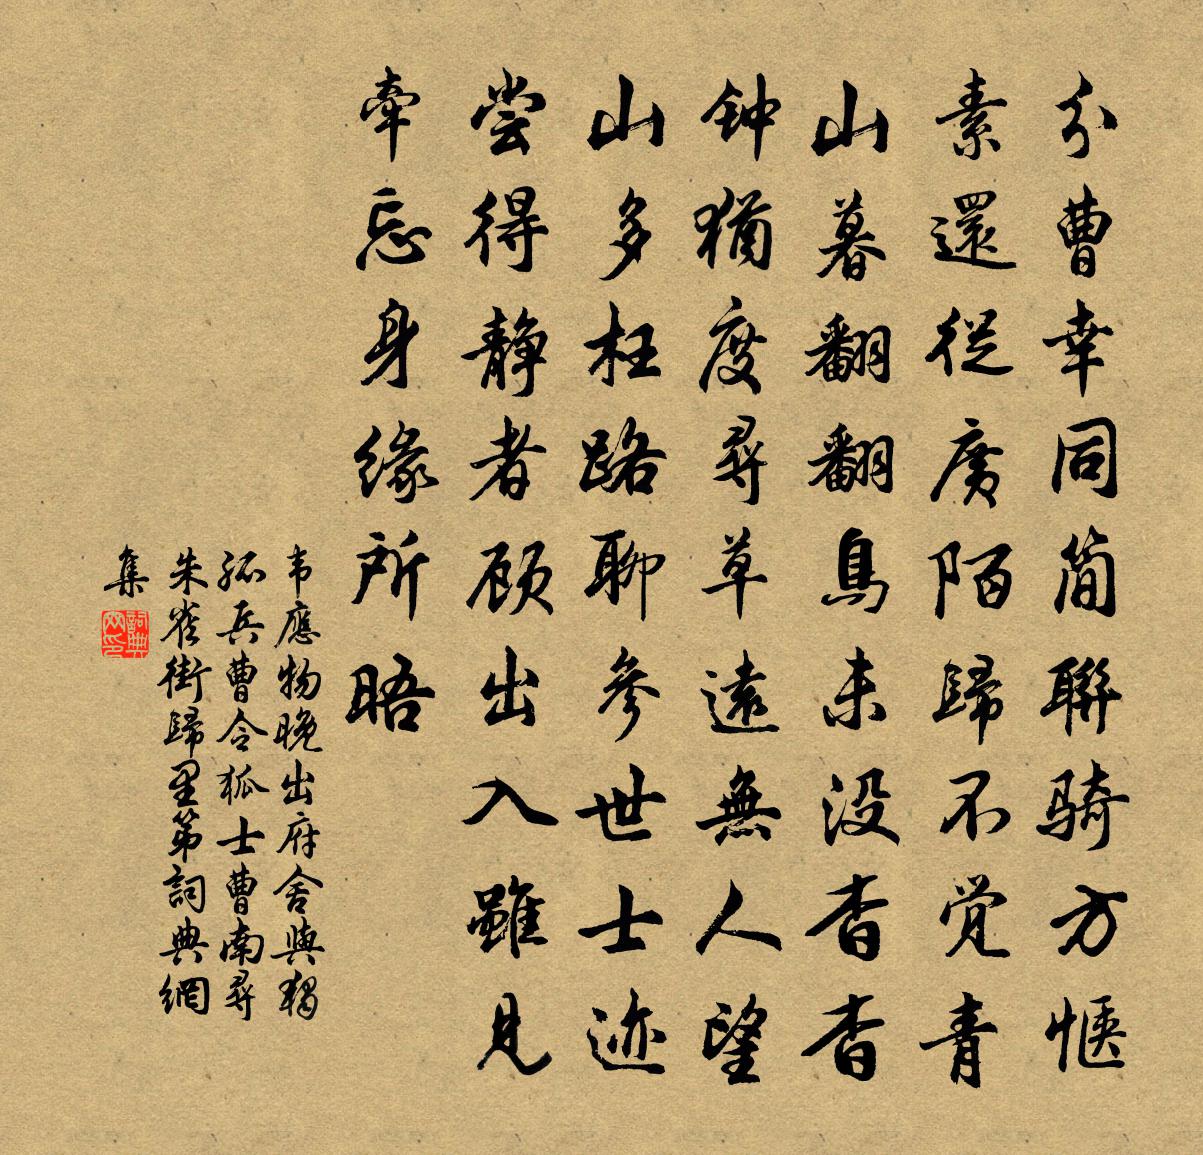 分曹幸同简聯骑方惬
素還從廣陌歸不觉青
山暮翻翻鳥未没杳杳
钟猶度尋草遠無人望
山多枉路聊參世士迹
尝得静者顾出入雖见
牵忘身缘所晤
韦應物晚出府舍與獨
孤兵曹令狐士曹南尋
朱雀街歸里第詞典網
集
詞典網印